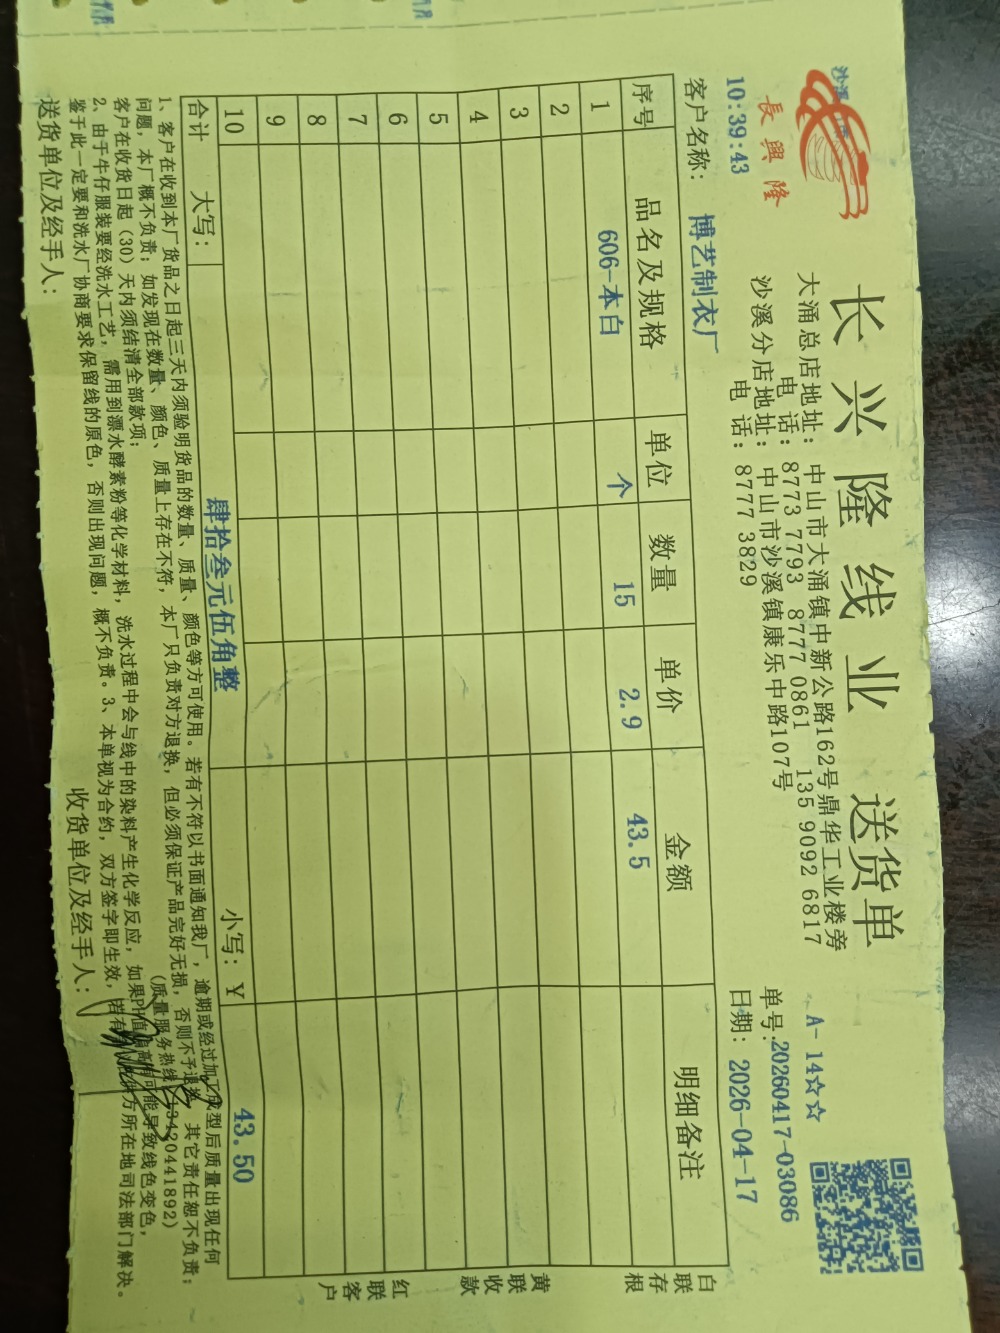 長興隆
长兴隆线业 送货单
A- 14☆☆
大涌总店地址：中山市大涌镇中新公路162号鼎华工业楼旁
电 话：8773 7793 8777 0861 135 9092 6817
沙溪分店地址：中山市沙溪镇康乐中路107号
电 话：8777 3829
单号:20260417-03086
10:39:43
日期：2026-04-17
客户名称：博艺制衣厂
序号 品名及规格 单位 数量 单价 金额 明细备注
1 606-本白 个 15 2.9 43.5
2
3
4
5
6
7
8
9
10
合计 大写：肆拾叁元伍角整 小写：Y 43.50
白联存根
黄联收款
红联客户
1、客户在收到本厂货品之日起三天内须验明货品的数量、质量、颜色等方可使用。若有不符以书面通知我厂，逾期或经过加工成型后质量出现任何
问题，本厂概不负责；如发现在数量、颜色、质量上存在不符，本厂只负责对方退换，但必须保证产品完好无损，否则不予退换，其它责任恕不负责；
客户在收货日起（30）天内须结清全部款项； (质量服务热线:13420441892)
2、由于牛仔服装要经洗水工艺，需用到漂水酵素粉等化学材料，洗水过程中会与线中的染料产生化学反应，如果PH值偏高有可能导致线色变色，
鉴于此一定要和洗水厂协商要求保留线的原色，否则出现问题，概不负责。3、本单视为合约，双方签字即生效，若有 方所在地司法部门解决。
送货单位及经手人： 收货单位及经手人：